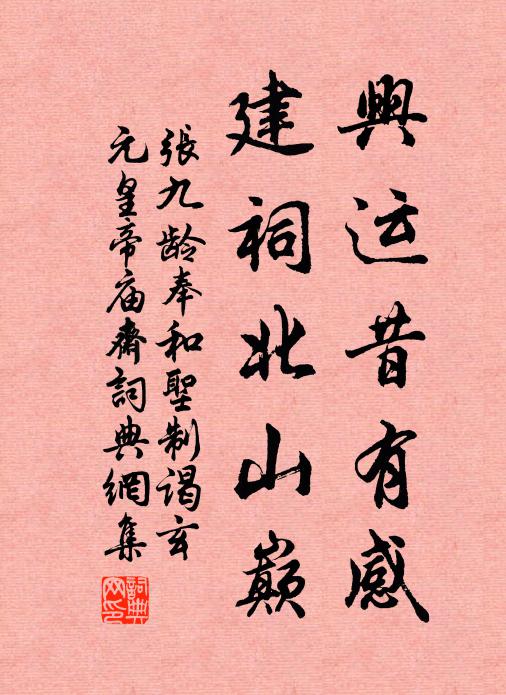 興运昔有感
建祠北山巔
張九龄奉和聖制谒玄
元皇帝庙齋詞典網集
詞典網印